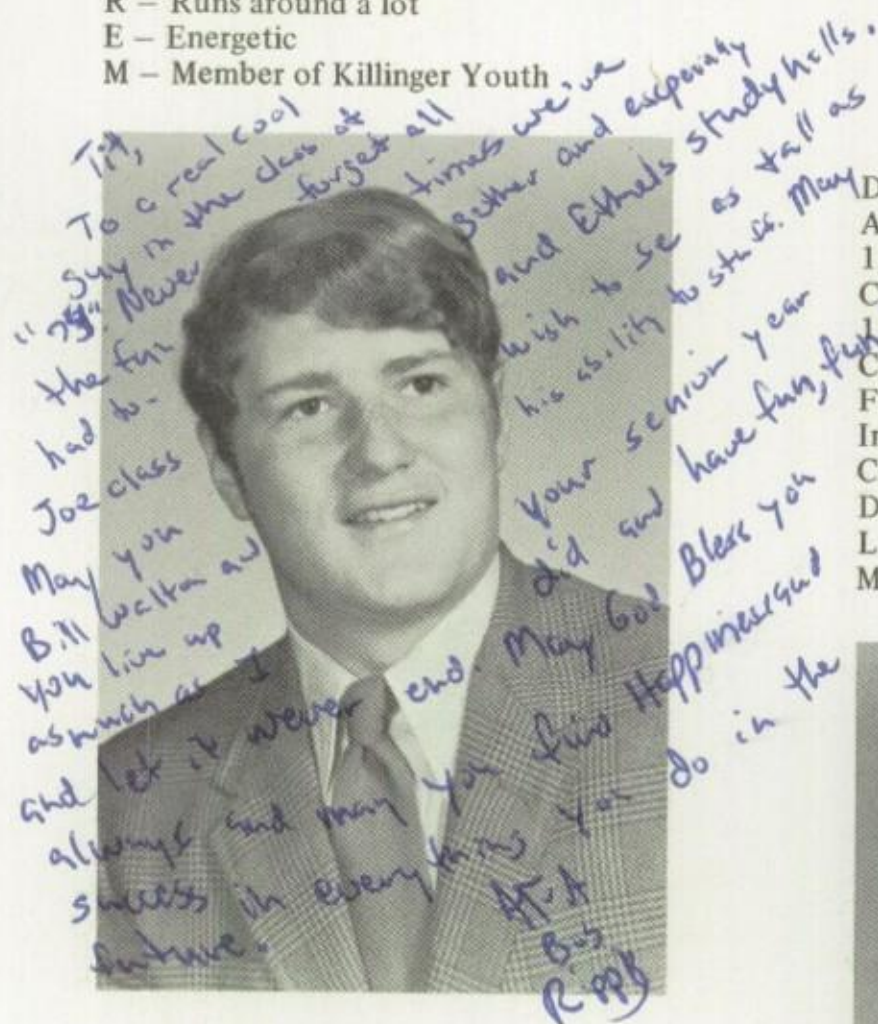 R – Runs around a lot
E – Energetic
M – Member of Killinger Youth
Tit,
To a real cool
guy in the class of
"75". Never forget all
the fun times we've
had to- gether and especially
Joe class and Ethels study halls.
May you wish to be as tall as
Bill Walton and his ability to stuff. May
you live up your senior year
as much as I did and have fun, fun
and let it never end. May God Bless you
always and may you find Happiness and
success in everything you do in the
future.
AFA
Bob
Rippy
D
A
1
C
1
C
F
In
C
D
L
M